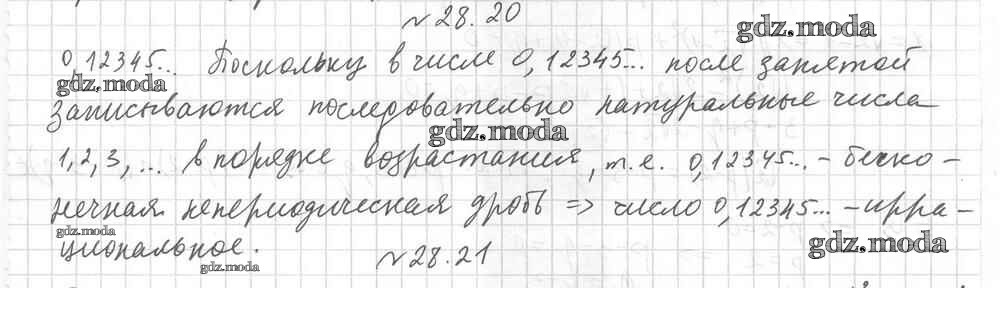 №28.20
gdz.moda
0,12345... Поскольку в числе 0,12345... после запятой
gdz.moda
записываются последовательно натуральные числа
gdz.moda
1,2,3,... в порядке возрастания, т.е. 0,12345... - беско-
нечная непериодическая дробь => число 0,12345... - ирра-
gdz.moda
циональное.
gdz.moda
gdz.moda
№28.21